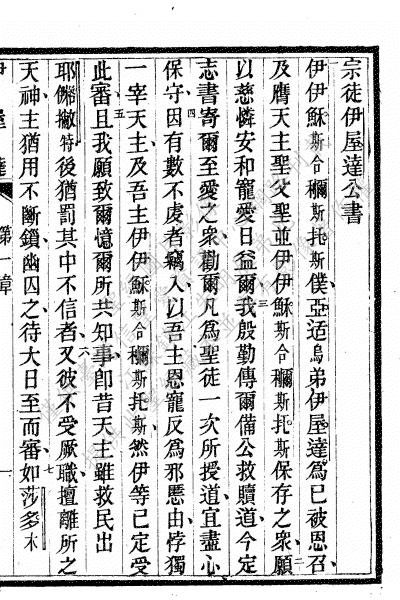 宗徒伊屋達公書
伊伊穌斯合穪斯托斯僕亞适烏弟伊屋達爲已被恩召
及膺天主聖父並伊伊穌斯合穪斯托斯保存之衆願
以慈憐安和寵愛日益爾我殷勤傳爾備公救贖道今定
志書寄爾至愛之衆勸爾凡爲聖徒一次所授道宜盡心
保守因有數不虔者竊入以吾主恩寵反爲邪慝由悖獨
一宰天主及吾主伊伊穌斯合穪斯托斯然伊等已定受
此審且我願致爾憶爾所共知事卽昔天主雖救民出
耶𨧱撇特後猶罰其中不信者又彼不受厥職擅離所之
天神主猶用不斷鎖幽囚之待大日至而審如莎多木
伊屋達 第一章